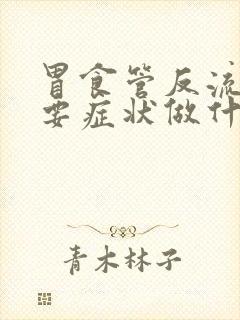 胃食管反流
要症状做什
青木林子